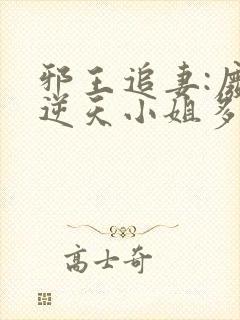 邪王追妻:
逆天小姐
高士奇